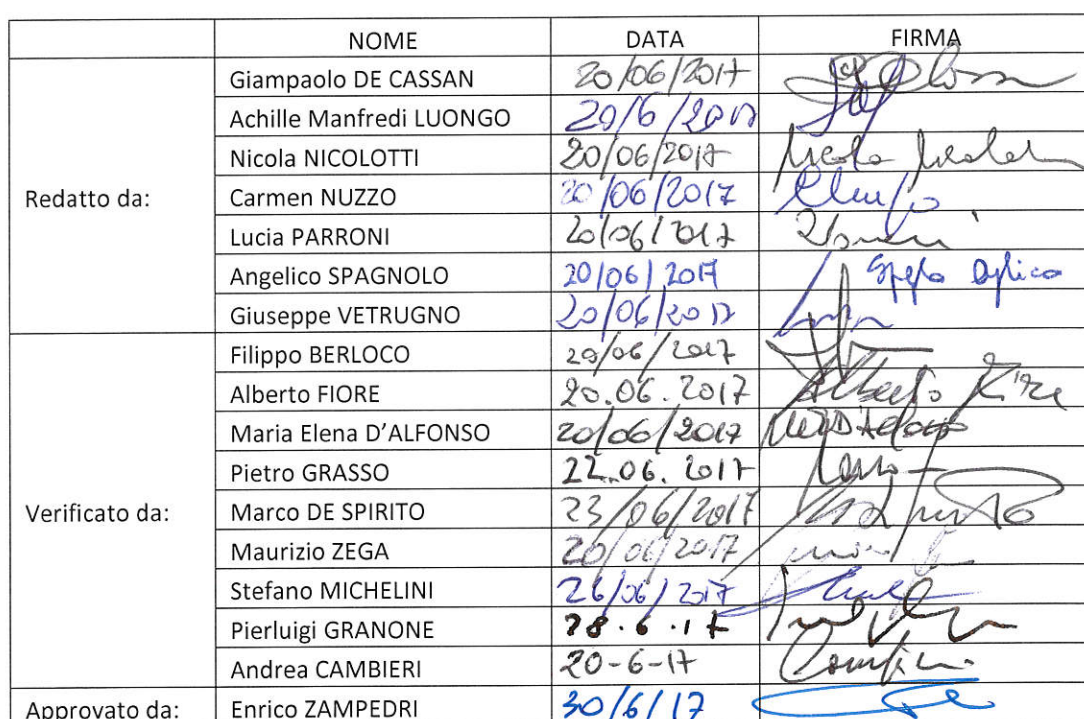 NOME DATA FIRMA
Giampaolo DE CASSAN 20/06/2017
Achille Manfredi LUONGO 20/6/2017
Nicola NICOLOTTI 20/06/2017 Nicola Nicolotti
Redatto da: Carmen NUZZO 20/06/2017
Lucia PARRONI 20/06/2017
Angelico SPAGNOLO 20/06/2017
Giuseppe VETRUGNO 20/06/2017
Filippo BERLOCO 20/06/2017
Alberto FIORE 20.06.2017 Alberto Fiore
Maria Elena D'ALFONSO 20/06/2017
Pietro GRASSO 22.06.2017
Verificato da: Marco DE SPIRITO 23/06/2017
Maurizio ZEGA 20/06/2017
Stefano MICHELINI 26/06/2017
Pierluigi GRANONE 28.6.17
Andrea CAMBIERI 20-6-17
Approvato da: Enrico ZAMPEDRI 30/6/17